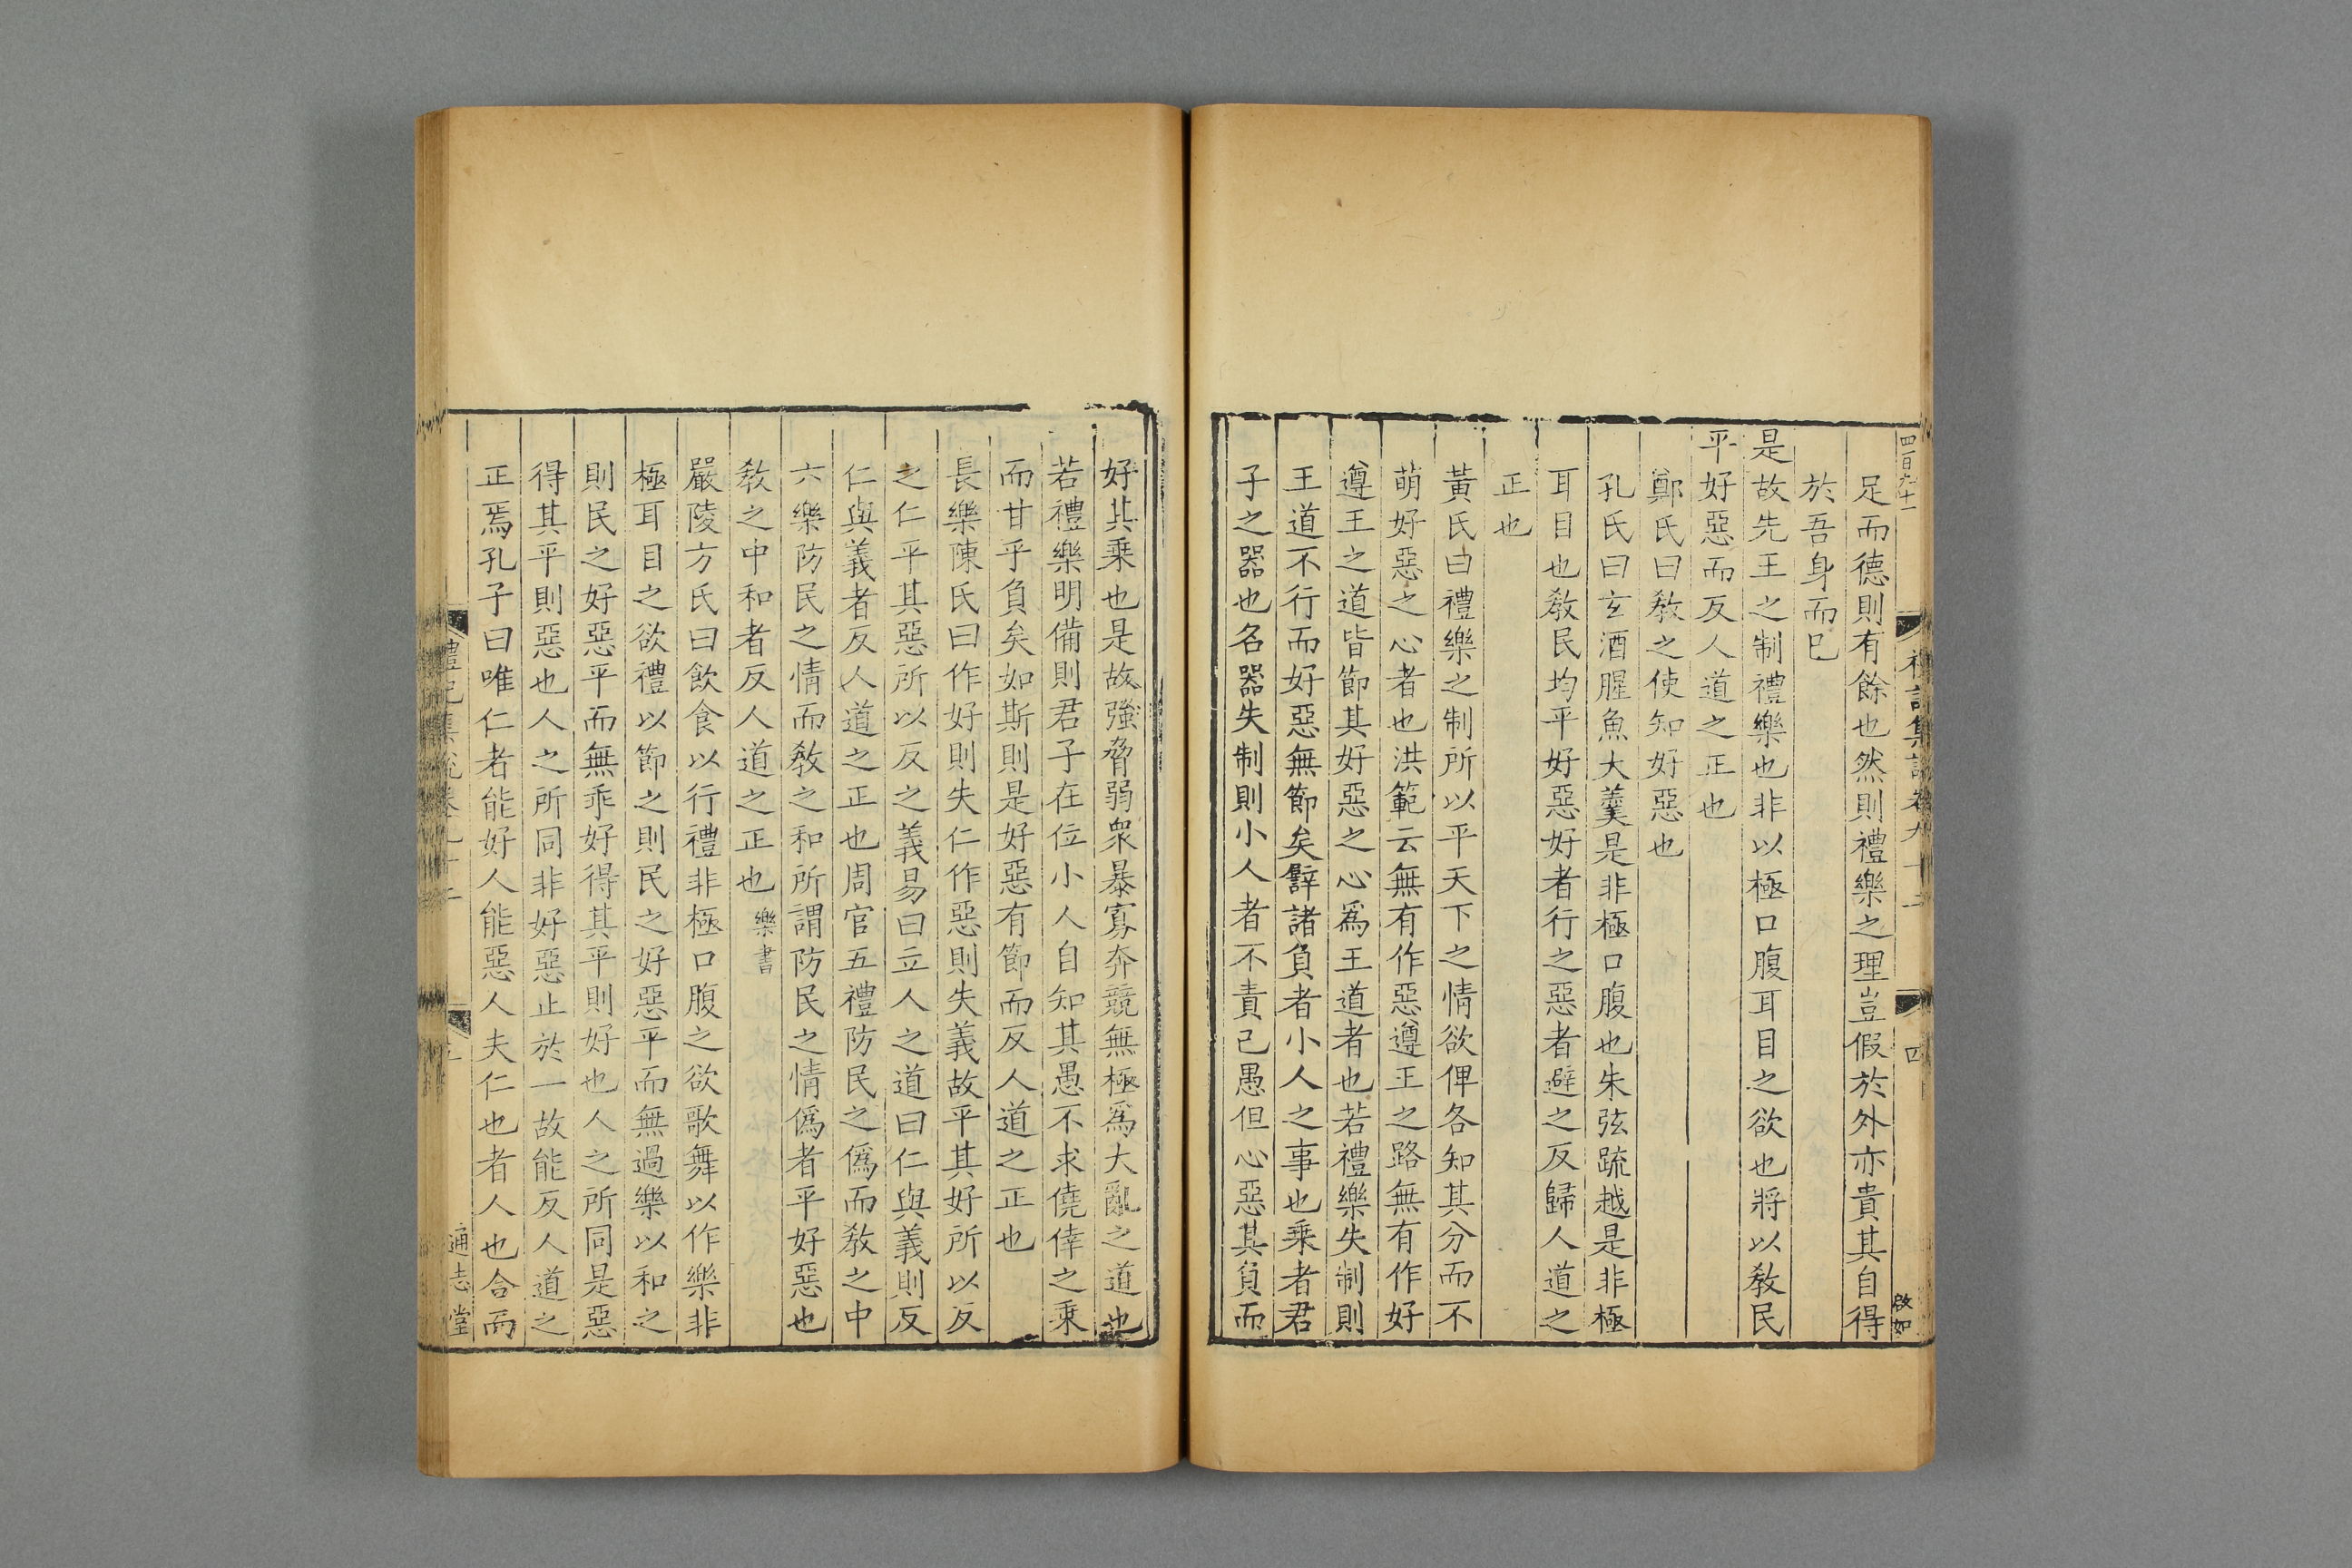 四百九十一
足而德則有餘也然則禮樂之理豈假於外亦貴其自得
於吾身而已
是故先王之制禮樂也非以極口腹耳目之欲也將以敎民
平好惡而反人道之正也
鄭氏曰敎之使知好惡也
孔氏曰玄酒腥魚大羹是非極口腹也朱弦疏越是非極
耳目也敎民均平好惡好者行之惡者避之反歸人道之
正也
黃氏曰禮樂之制所以平天下之情欲俾各知其分而不
萌好惡之心者也洪範云無有作惡遵王之路無有作好
遵王之道皆節其好惡之心爲王道者也若禮樂失制則
王道不行而好惡無節矣譬諸負者小人之事也乗者君
子之器也名器失制則小人者不責己愚但心惡其負而
四
啟如
好其乗也是故強脅弱衆暴寡奔競無極爲大亂之道也
若禮樂明備則君子在位小人自知其愚不求僥倖之乗
而甘乎負矣如斯則是好惡有節而反人道之正也
長樂陳氏曰作好則失仁作惡則失義故平其好所以反
之仁平其惡所以反之義易曰立人之道曰仁與義則反
仁與義者反人道之正也周官五禮防民之僞而敎之中
六樂防民之情而敎之和所謂防民之情僞者平好惡也
敎之中和者反人道之正也樂書
嚴陵方氏曰飲食以行禮非極口腹之欲歌舞以作樂非
極耳目之欲禮以節之則民之好惡平而無過樂以和之
則民之好惡平而無乖好得其平則好也人之所同是惡
得其平則惡也人之所同非好惡止於一故能反人道之
正焉孔子曰唯仁者能好人能惡人夫仁也者人也合而
禮記集說卷九十二
通志堂